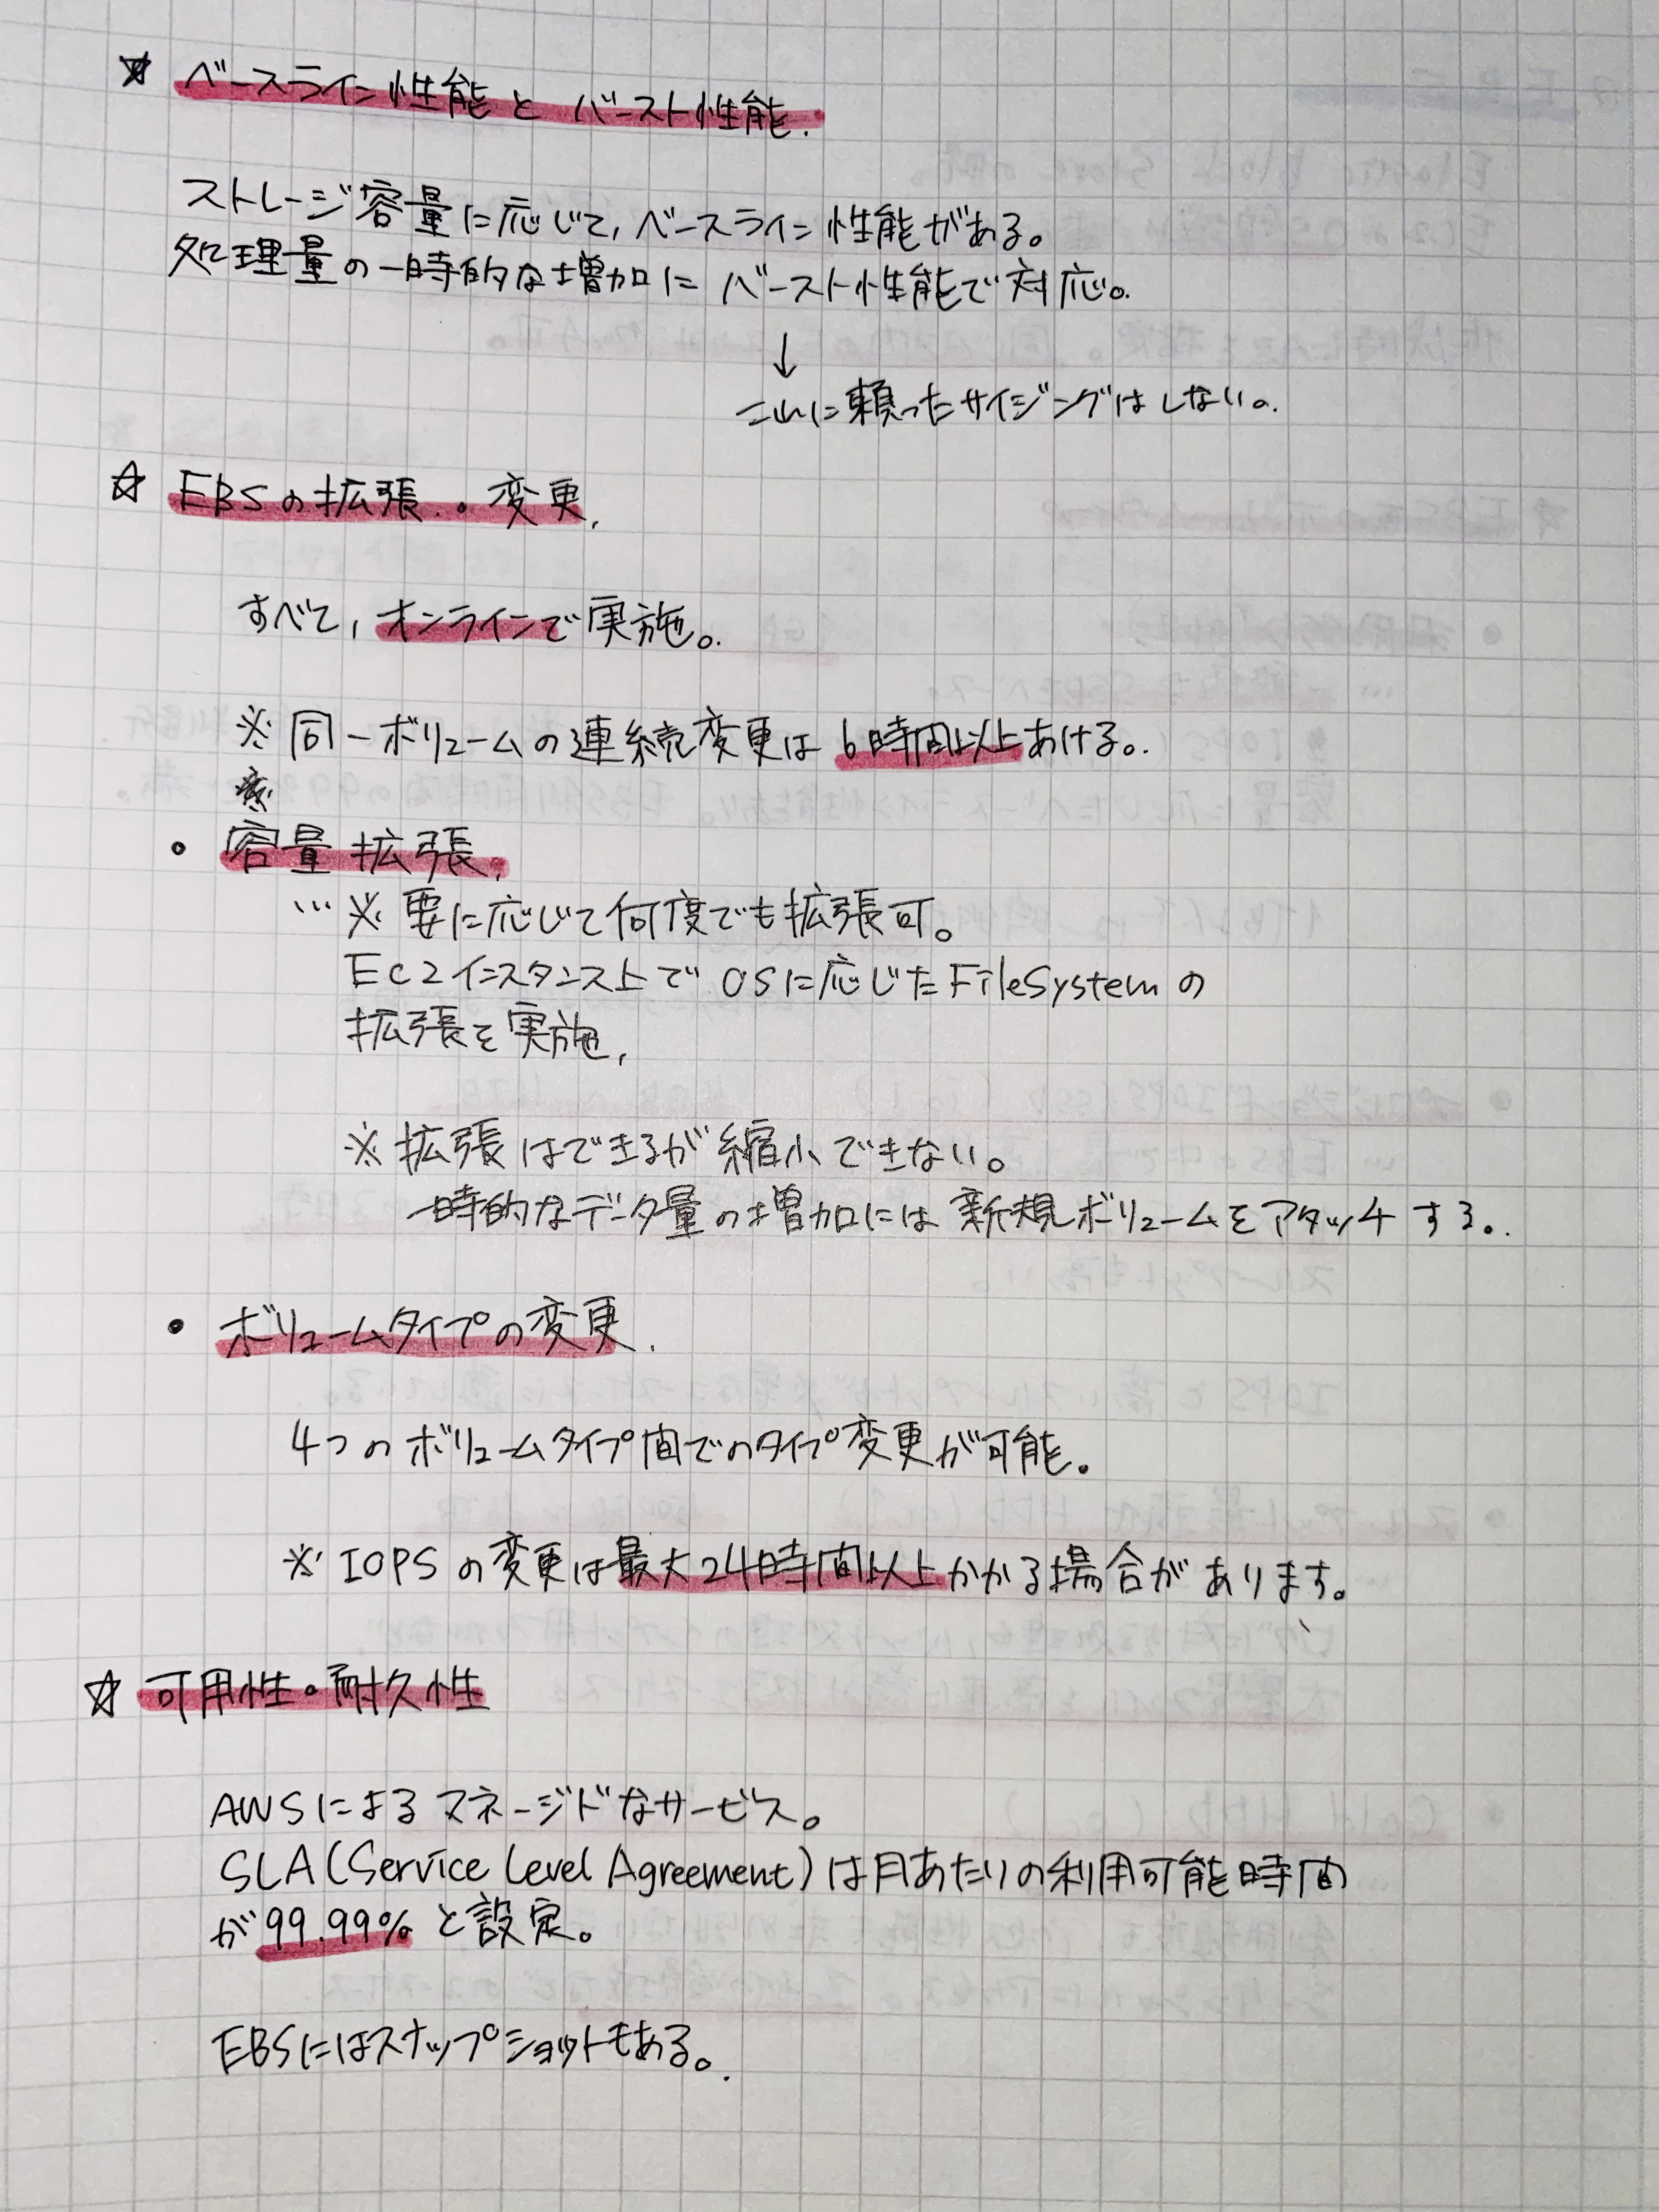 ☆ ベースライン性能とバースト性能.
ストレージ容量に応じて,ベースライン性能がある。
処理量の一時的な増加にバースト性能で対応。
↓
これに頼ったサイジングはしない。
☆ EBSの拡張・変更,
すべて,オンラインで実施。
※ 同一ボリュームの連続変更は6時間以上あける。
• 容量拡張,
… ※ 要に応じて何度でも拡張可。
EC2インスタンス上でOSに応じたFileSystemの
拡張を実施,
※ 拡張はできるが縮小できない。
一時的なデータ量の増加には新規ボリュームをアタッチする。
• ボリュームタイプの変更.
4つのボリュームタイプ間でのタイプ変更が可能。
※ IOPSの変更は最大24時間以上かかる場合があります。
☆ 可用性・耐久性
AWSによるマネージドなサービス。
SLA(Service Level Agreement)は月あたりの利用可能時間
が99.99%と設定。
EBSにはスナップショットもある。